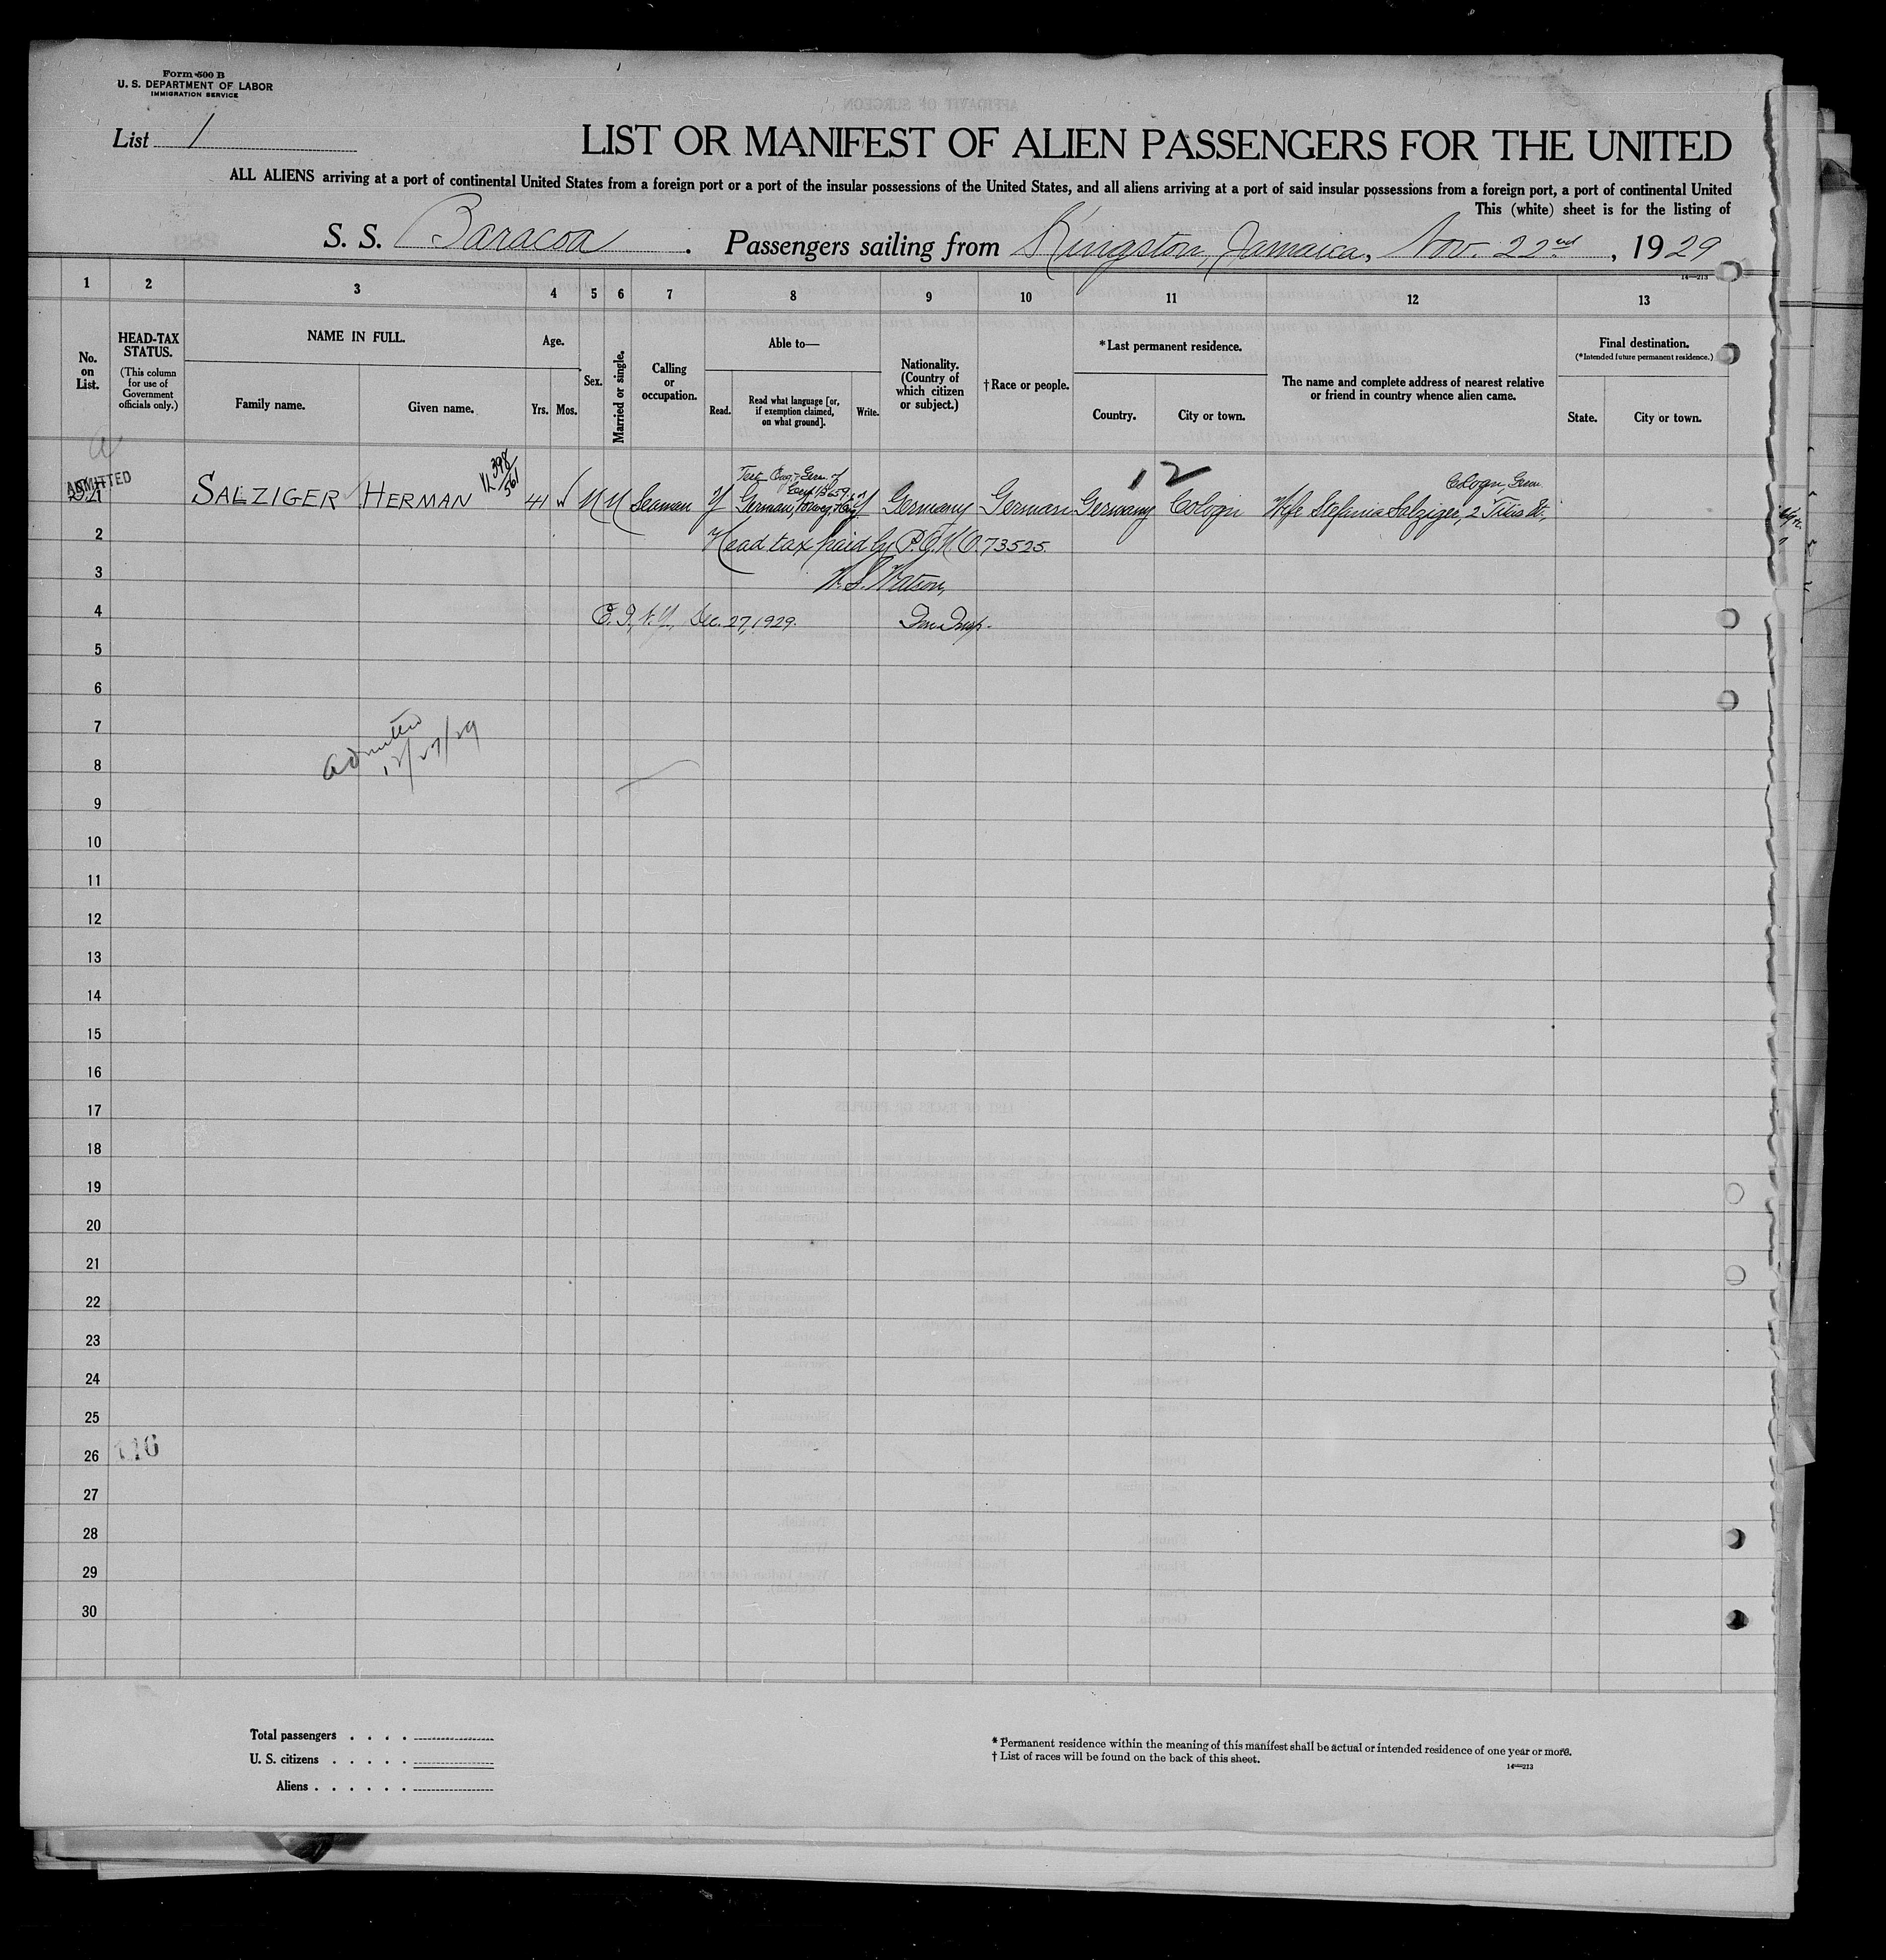 Form 500 B
U. S. DEPARTMENT OF LABOR
IMMIGRATION SERVICE
List 1
LIST OR MANIFEST OF ALIEN PASSENGERS FOR THE UNITED
ALL ALIENS arriving at a port of continental United States from a foreign port or a port of the insular possessions of the United States, and all aliens arriving at a port of said insular possessions from a foreign port, a port of continental United
This (white) sheet is for the listing of
S. S. Baracoa. Passengers sailing from Kingston, Jamaica, Nov. 22nd, 1929
14—213
1 2 3 4 5 6 7 8 9 10 11 12 13
No. on List.
HEAD-TAX STATUS.
(This column for use of Government officials only.)
NAME IN FULL.
Family name.
Given name.
Age.
Yrs. Mos.
Sex.
Married or single.
Calling or occupation.
Able to—
Read.
Read what language [or, if exemption claimed, on what ground].
Write.
Nationality. (Country of which citizen or subject.)
† Race or people.
*Last permanent residence.
Country.
City or town.
The name and complete address of nearest relative or friend in country whence alien came.
Final destination.
(*Intended future permanent residence.)
State.
City or town.
12
ADMITTED
398/561
Cologn, Germ.
SALZIGER HERMAN 41 M M Seaman Y German, Y Germany German Germany Cologn Wife Stefania Salziger, 2 Titus St.,
2
Head tax paid by P.O.M.O. 73525.
3
W. S. Watson,
4
E. I., N.Y., Dec. 27, 1929. Imm Insp.
5
6
7
Admitted
12/27/29
8
9
10
11
12
13
14
15
16
17
18
19
20
21
22
23
24
25
26
116
27
28
29
30
Total passengers . . . .
U. S. citizens . . . . .
Aliens . . . . . .
* Permanent residence within the meaning of this manifest shall be actual or intended residence of one year or more.
† List of races will be found on the back of this sheet.
14—213